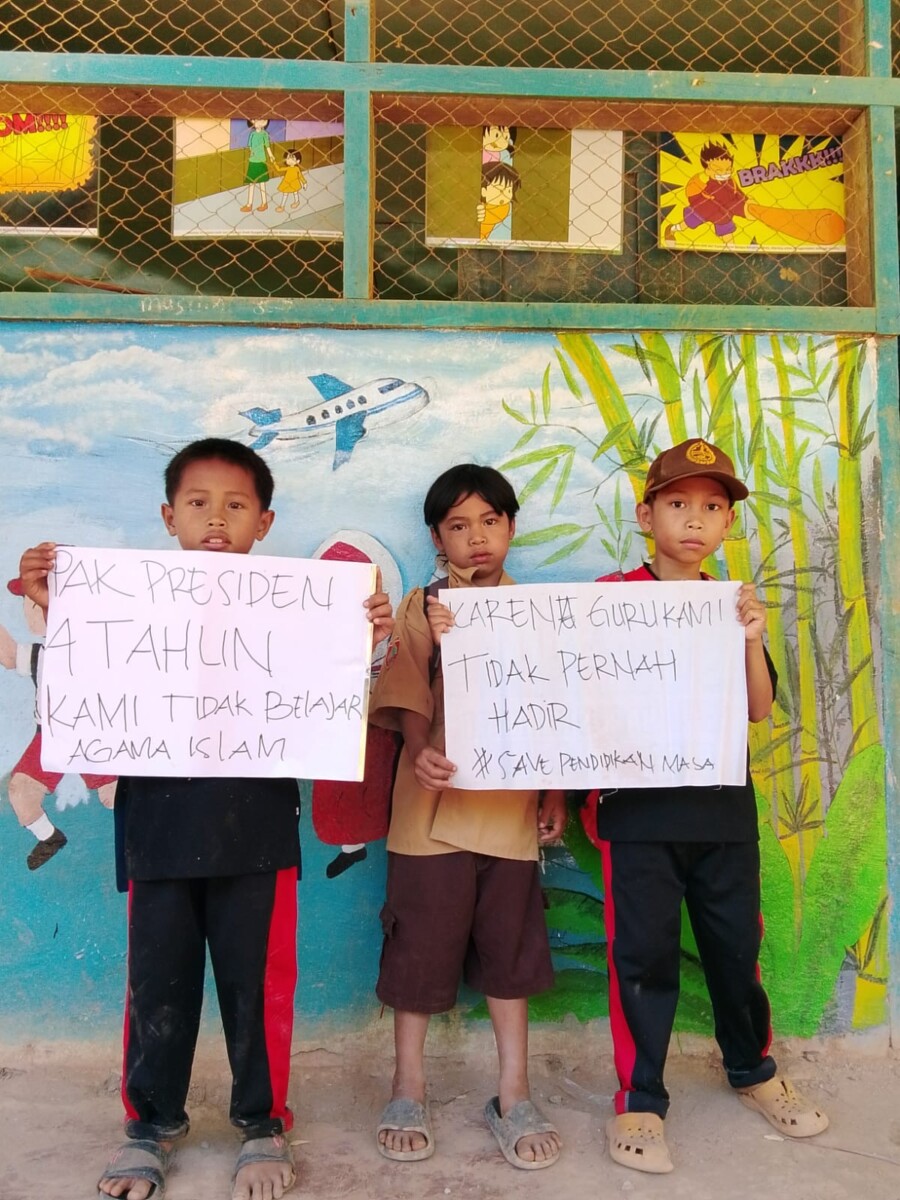 OM!!!!
BRAKKK!!!
PAK PRESIDEN
4 TAHUN
KAMI TIDAK BELAJAR
AGAMA ISLAM
KARENA GURU KAMI
TIDAK PERNAH
HADIR
#SAVE PENDIDIKAN MASA